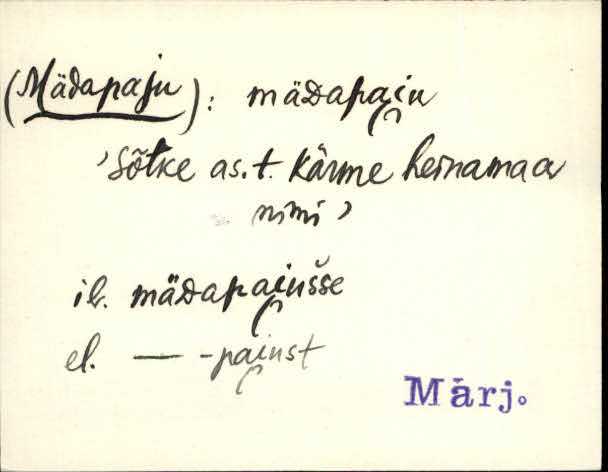 (Mädapaju): mädapai̯u
'Sõtke as.t. Kärme heinamaa
nimi'
ill. mädapai̯ušše
el. — -pai̯ust
Märj.